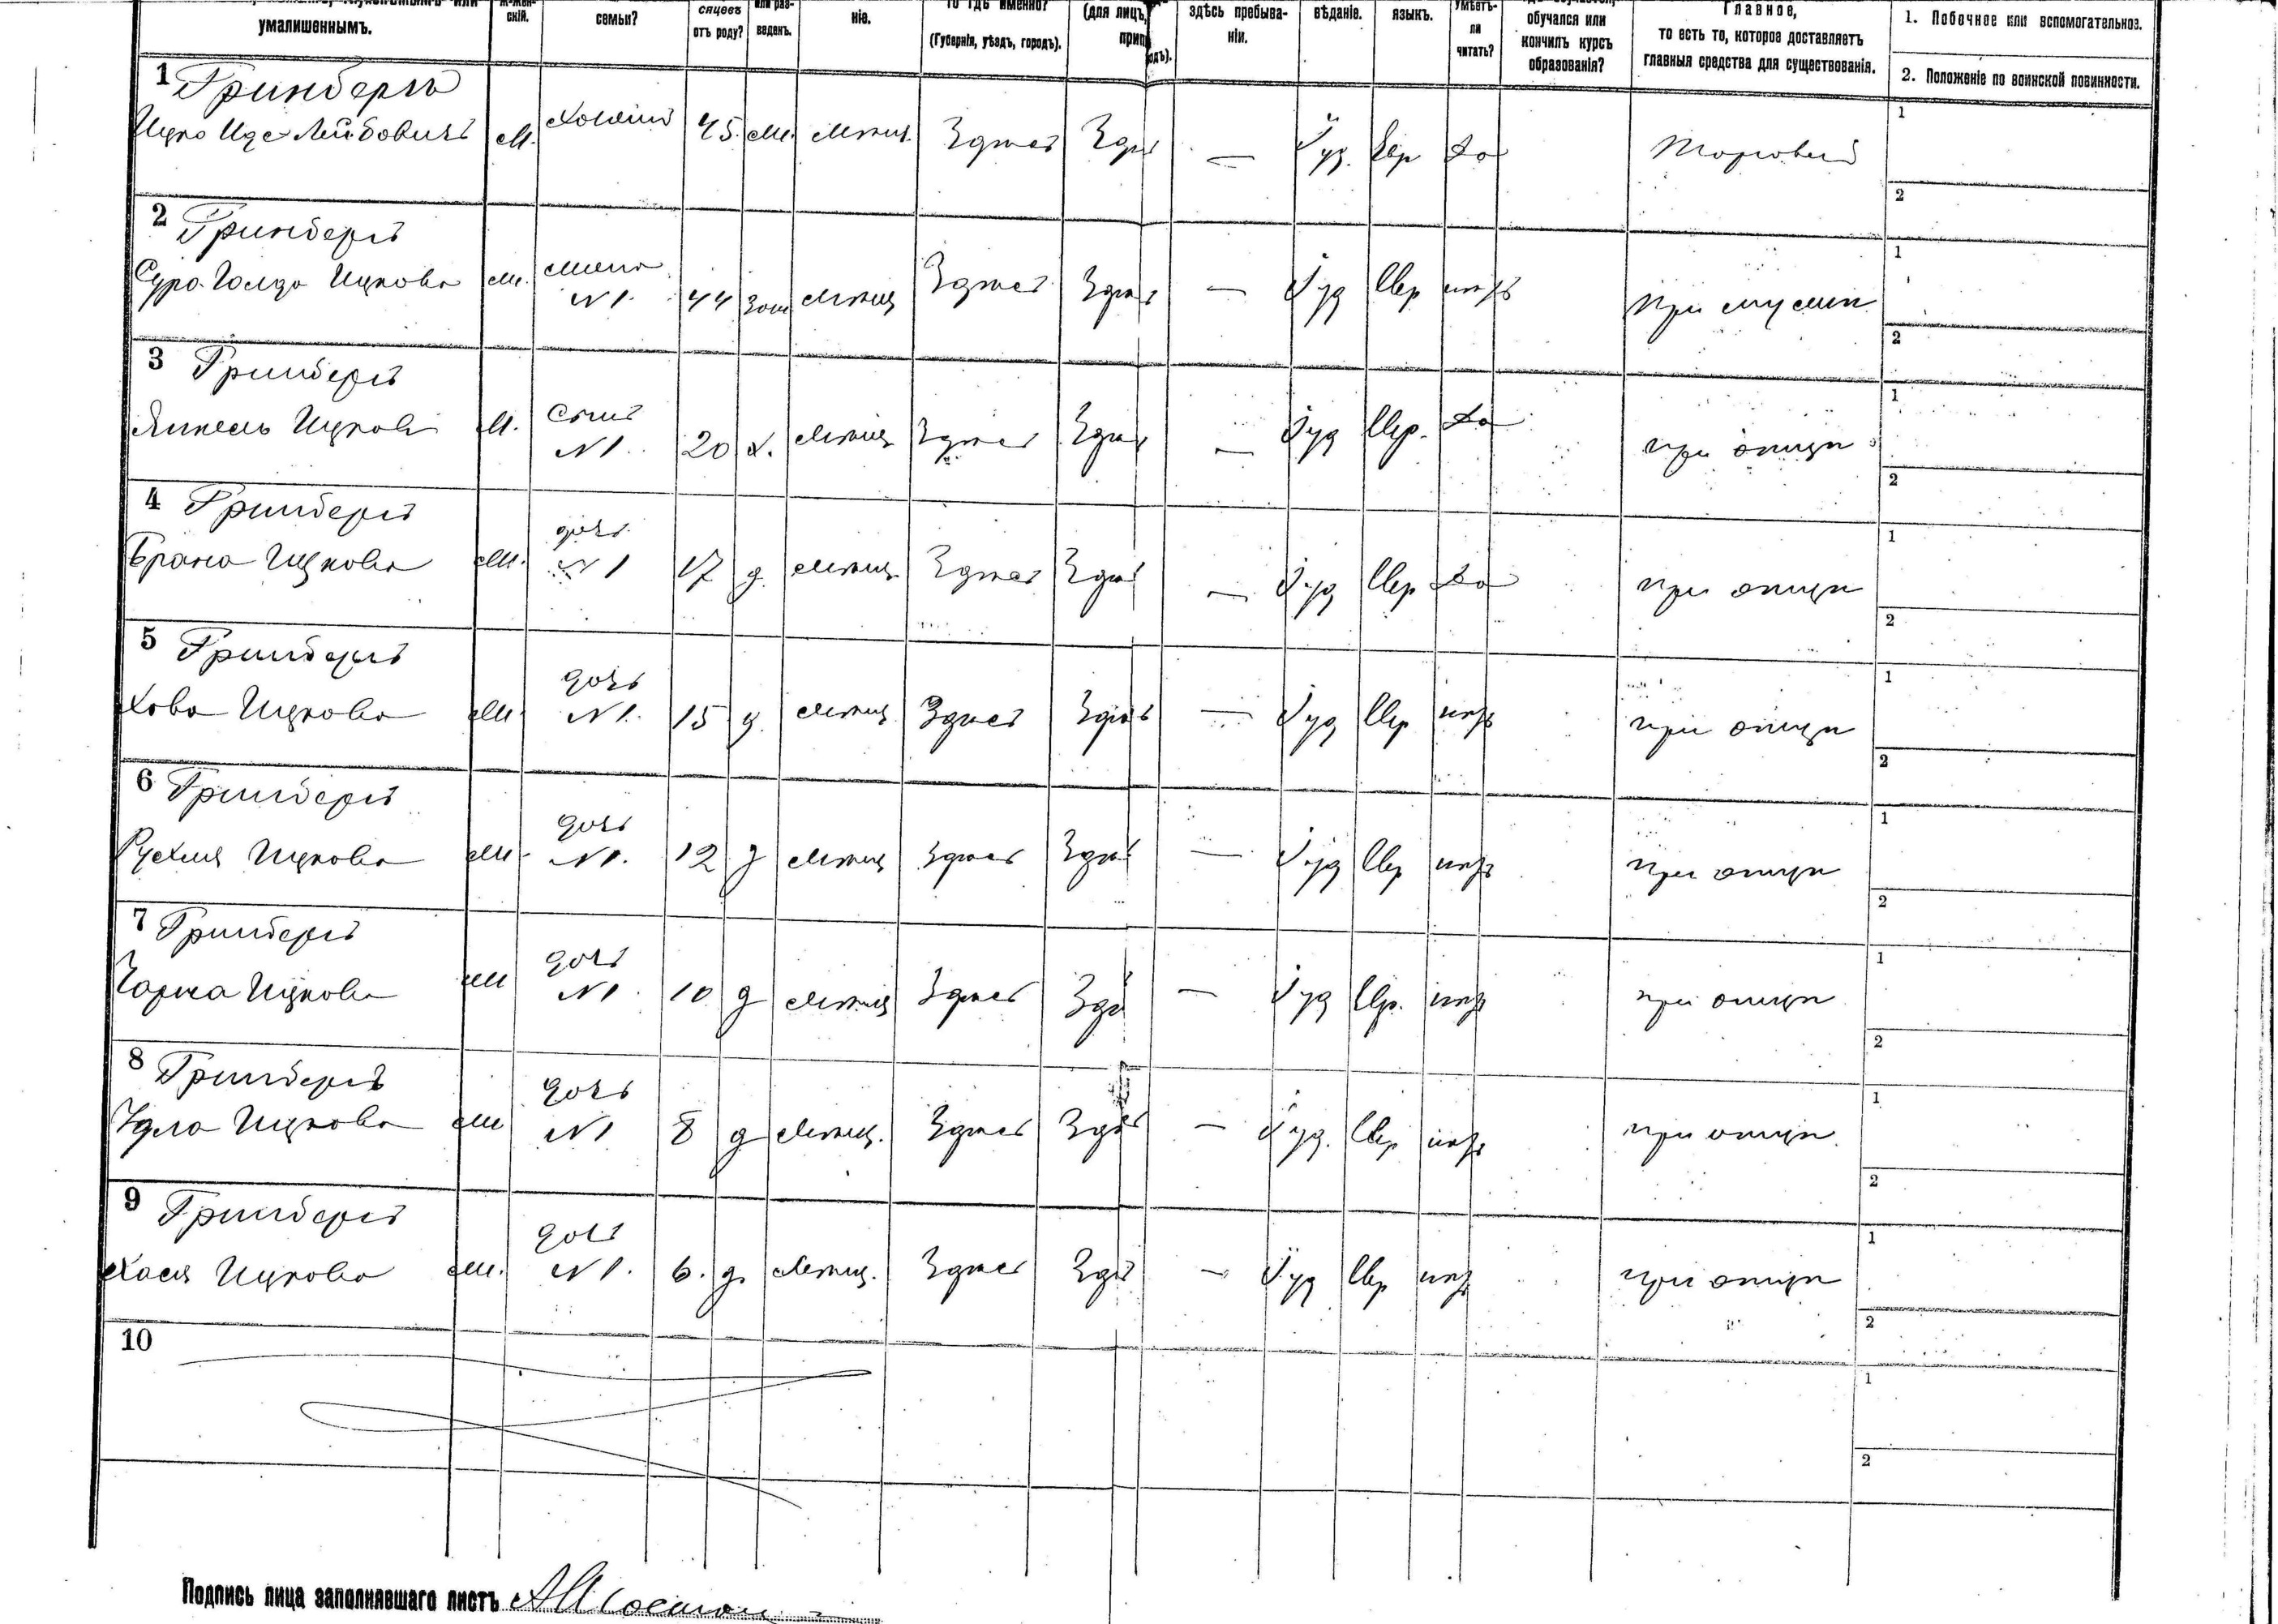 умалишеннымъ. скій. семьи? сяцевъ отъ роду? или раз- веденъ. ніе. то гдѣ именно? (Губернія, уѣздъ, городъ). (для лицъ, здѣсь пребыва- ніи. вѣданіе. языкъ. умѣетъ- ли читать? обучался или кончилъ курсъ образованія? Главное, то есть то, которое доставляетъ главныя средства для существованія. 1. Побочное или вспомогательное.
2. Положеніе по воинской повинности.
1 Гринбергъ
Ицко Иде Лейбовичъ м. хозяинъ 45 м. мѣщ. Здѣсь Здѣсь — Іуд. Евр да торговый 1
2
2 Гринбергъ
Сура Голда Ицкова ж. жена №1. 44 Зам мѣщ Здѣсь Здѣсь — Іуд Евр нѣтъ при мужѣ 1
2
3 Гринбергъ
Янкель Ицков м. сынъ №1. 20 х. мѣщ Здѣсь Здѣсь — Іуд Евр. да при отцѣ 1
2
4 Гринбергъ
Брана Ицкова ж. дочь №1 17 д. мѣщ. Здѣсь Здѣсь — Іуд Евр да при отцѣ 1
2
5 Гринбергъ
Хова Ицкова ж. дочь №1. 15 д. мѣщ Здѣсь Здѣсь — Іуд Евр нѣтъ при отцѣ 1
2
6 Гринбергъ
Рухля Ицкова ж. дочь №1. 12 д мѣщ Здѣсь Здѣсь — Іуд Евр нѣтъ при отцѣ 1
2
7 Гринбергъ
Чарна Ицкова ж дочь №1. 10 д мѣщ Здѣсь Здѣ — Іуд Евр. нѣтъ при отцѣ 1
2
8 Гринбергъ
Ицкова ж дочь №1 8 д мѣщ. Здѣсь Здѣсь — Іуд. Евр нѣтъ при отцѣ 1
2
9 Гринбергъ
Хася Ицкова ж. дочь №1. 6. д. мѣщ. Здѣсь Здѣсь — Іуд Евр нѣтъ при отцѣ 1
2
10 1
2
Подпись лица заполнявшаго листъ